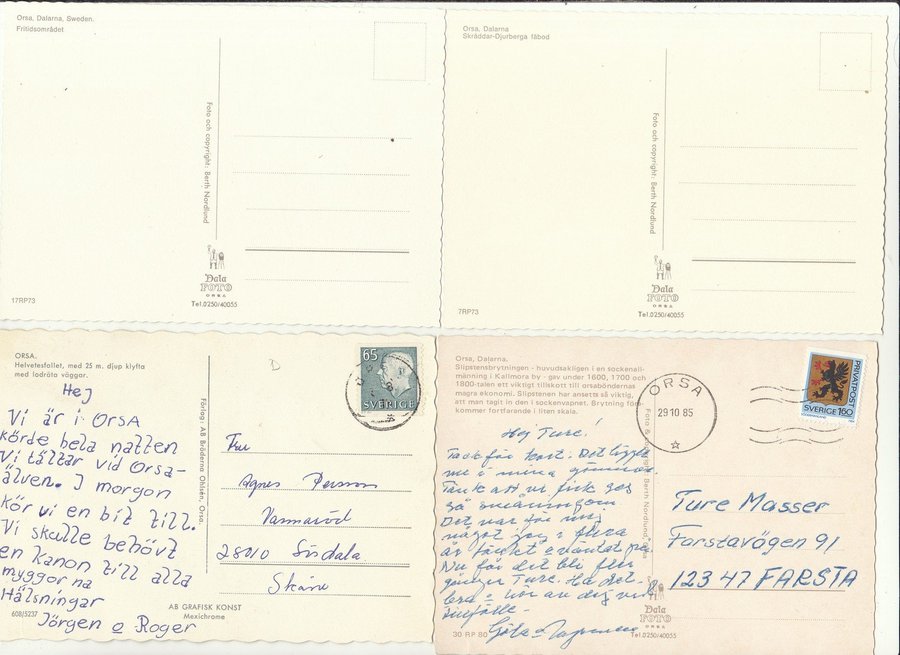 Orsa, Dalarna, Sweden.
Fritidsområdet
Foto och copyright: Berth Nordlund
Dala
FOTO
ORSA
Tel.0250/40055
17RP73
Orsa, Dalarna
Skräddar-Djurberga fäbod
Foto och copyright: Berth Nordlund
Dala
FOTO
ORSA
Tel.0250/40055
7RP73
ORSA.
Helvetesfallet, med 25 m. djup klyfta
med lodräta väggar.
Hej
Vi är i Orsa
körde hela natten
Vi tältar vid Orsa-
älven. I morgon
kör vi en bit till.
Vi skulle behövt
en kanon till alla
myggorna
Hälsningar
Jörgen o Roger
608/5237
Förlag: AB Bröderna Ohlsén, Orsa.
AB GRAFISK KONST
Mexichrome
D
65
SVERIGE
Fru
Agnes Persson
Vannaröd
28010 Sösdala
Skåne
Orsa, Dalarna.
Slipstensbrytningen - huvudsakligen i en sockenall-
männing i Kallmora by - gav under 1600, 1700 och
1800-talen ett viktigt tillskott till orsaböndernas
magra ekonomi. Slipstenen har ansetts så viktig,
att man tagit in den i sockenvapnet. Brytning före-
kommer fortfarande i liten skala.
Hej Ture!
Tack för kort. Det
me i mina gömmor.
Tänk att vi fick ses
så småningom.
Det var för mig
något jag i flera
år tänkt o väntat på
Nu får det bli fler
gånger Ture. Ha det
bra o hör av dig vid
tillfälle.
Göta
30 RP 80
Foto & copyright: Berth Nordlund, Orsa
Dala
FOTO
ORSA
Tel.0250/40055
ORSA
29 10 85
PRIVATPOST
SVERIGE 160
Ture Masser
Farstavägen 91
123 47 FARSTA